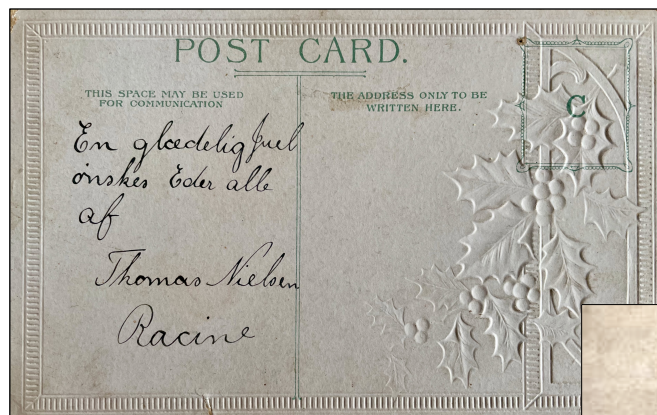 POST CARD.
THIS SPACE MAY BE USED
FOR COMMUNICATION
THE ADDRESS ONLY TO BE
WRITTEN HERE.
C
En glædelig Juel
önskes Eder alle
af
Thomas Nielsen
Racine